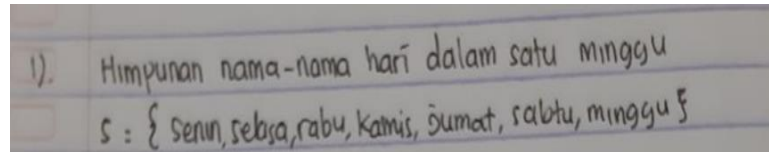 1). Himpunan nama-nama hari dalam satu minggu
S : { senin, selasa, rabu, kamis, jumat, sabtu, minggu }